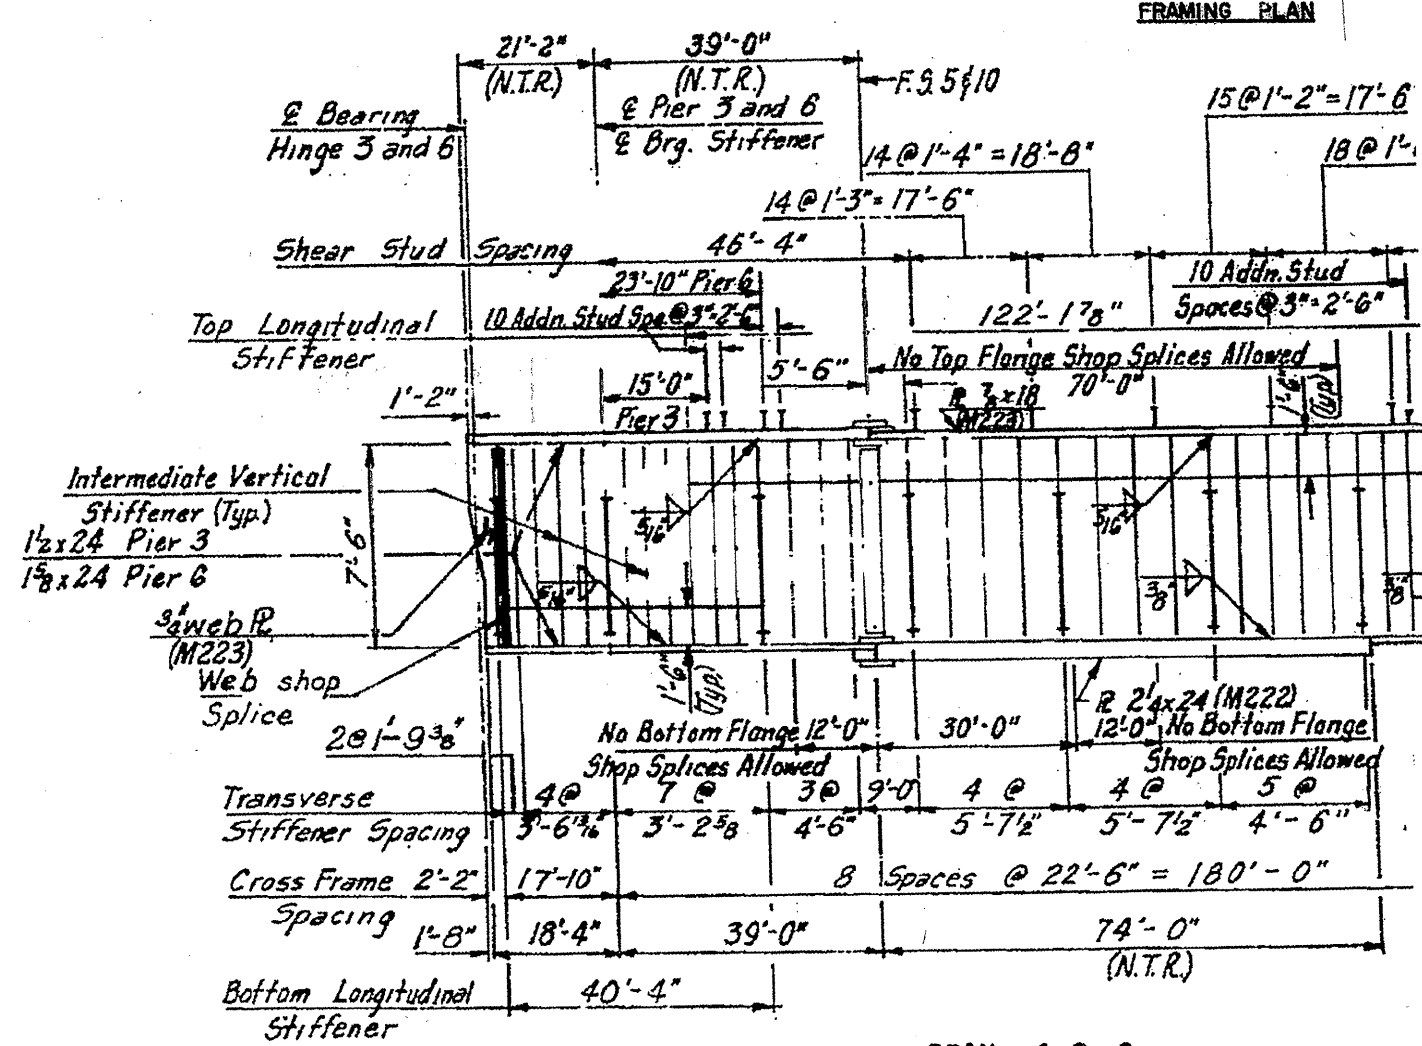 FRAMING PLAN
21'-2"
(N.T.R.)
39'-0"
(N.T.R.)
F.S. 5 ¢ 10
℄ Bearing
Hinge 3 and 6
℄ Pier 3 and 6
℄ Brg. Stiffener
15 @ 1'-2" = 17'-6
14 @ 1'-4" = 18'-8"
18 @ 1'-
14 @ 1'-3" = 17'-6"
Shear Stud Spacing
46'-4"
23'-10" Pier 6
10 Addn. Stud
Spaces @ 3" = 2'-6"
Top Longitudinal
Stiffener
10 Addn. Stud Spa. @ 3" = 2'-6"
122'-1 7/8"
No Top Flange Shop Splices Allowed
5'-6"
70'-0"
1'-2"
15'-0"
Pier 3
PL 7/8 x 18
(M223)
1'-6"
(Typ.)
Intermediate Vertical
Stiffener (Typ.)
1 1/2 x 24 Pier 3
1 5/8 x 24 Pier 6
7'-6"
5/16"
5/16"
5/16"
3/8"
3/8"
3/4" web PL
(M223)
Web shop
Splice
1'-6"
(Typ.)
PL 2 1/4 x 24 (M222)
2 @ 1'-9 3/8"
No Bottom Flange
Shop Splices Allowed
12'-0"
30'-0"
12'-0"
No Bottom Flange
Shop Splices Allowed
Transverse
Stiffener Spacing
4 @
3'-6 13/16"
7 @
3'-2 5/8
3 @
4'-6"
9'-0
4 @
5'-7 1/2"
4 @
5'-7 1/2"
5 @
4'-6"
Cross Frame
Spacing
2'-2"
17'-10"
8 Spaces @ 22'-6" = 180'-0"
1'-8"
18'-4"
39'-0"
74'-0"
(N.T.R.)
Bottom Longitudinal
Stiffener
40'-4"